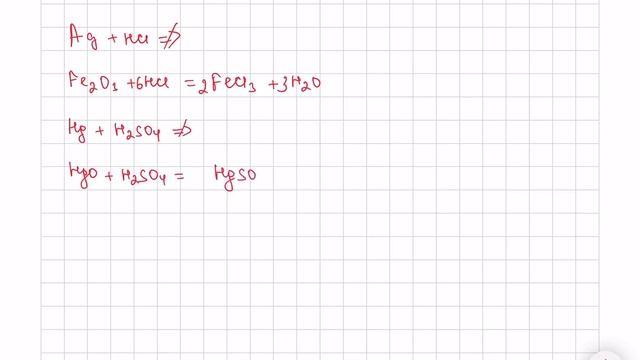 Ag + HCl ≠>
Fe₂O₃ + 6HCl = 2FeCl₃ + 3H₂O
Hg + H₂SO₄ ≠>
HgO + H₂SO₄ = HgSO